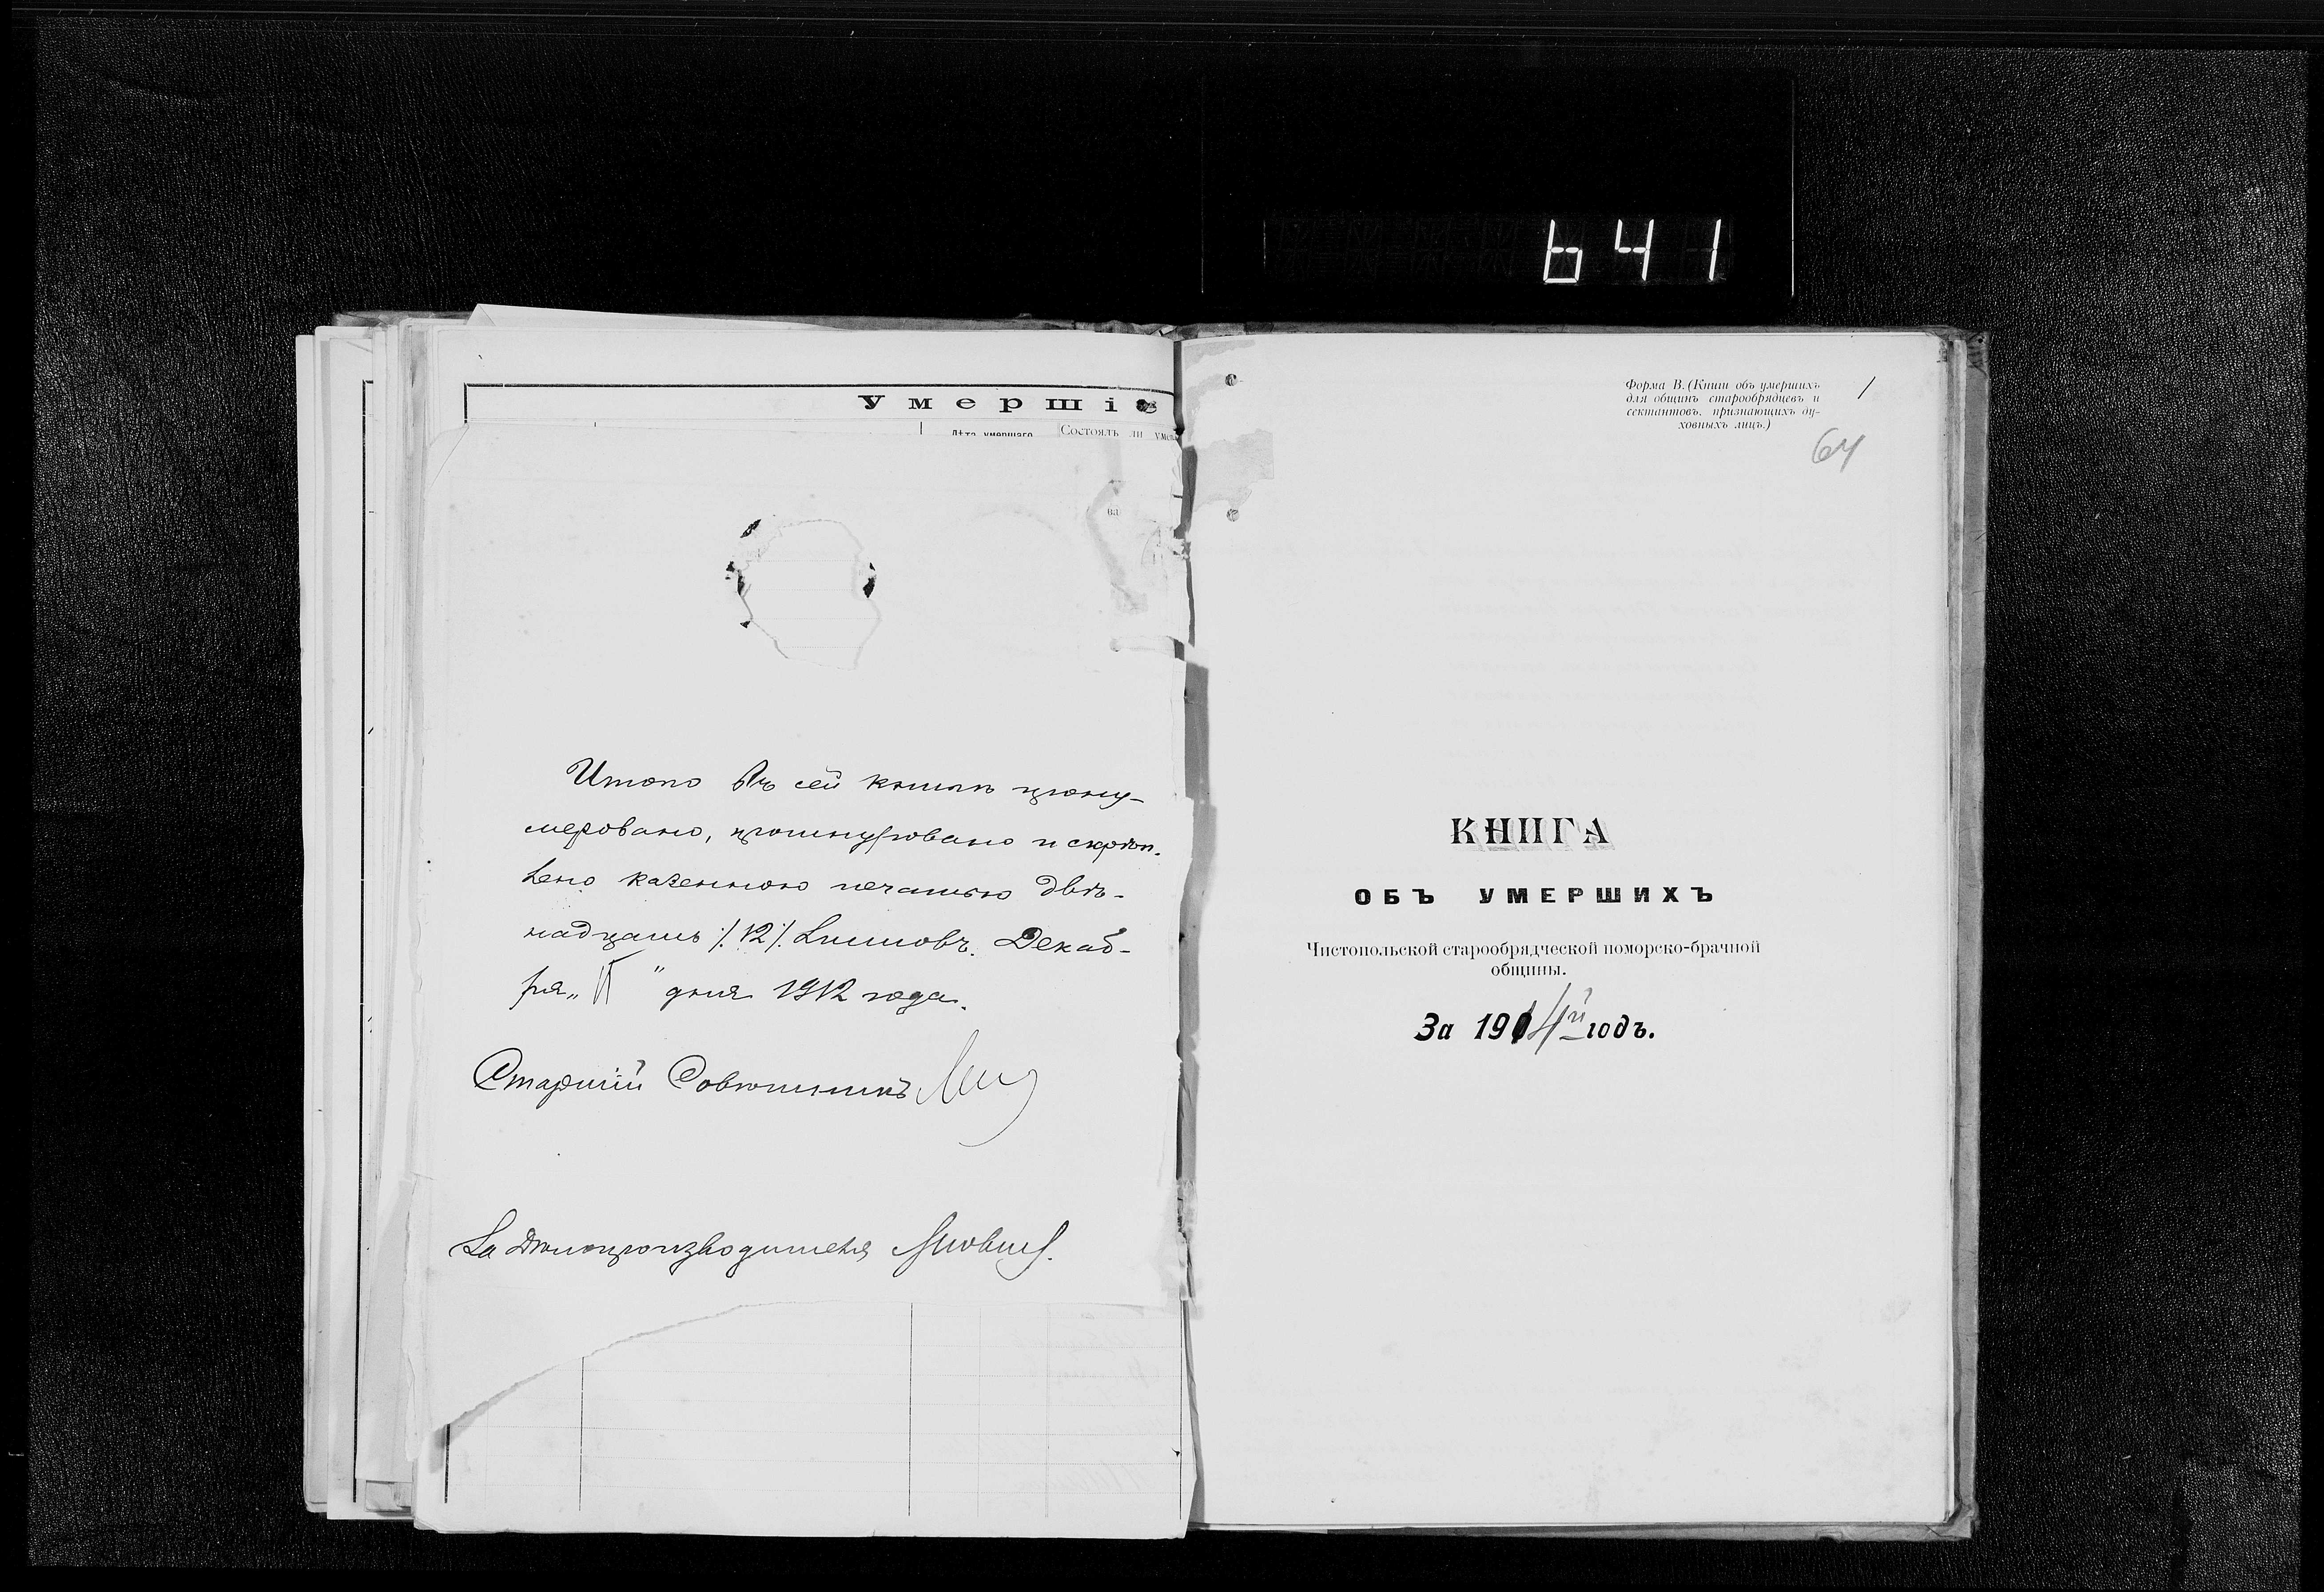 641
Умершіе
Лѣта умершаго Состоялъ ли
Итого въ сей книгѣ прону-
меровано, прошнуровано и скрѣп-
лено казенною печатью двѣ-
надцать /.12/. листовъ. Декаб-
ря „ " дня 1912 года.
Старшій Совѣтникъ
За Дѣлопроизводителя
Форма В. (Книги объ умершихъ
для общинъ старообрядцевъ и
сектантовъ, признающихъ ду-
ховныхъ лицъ.)
1
64
КНИГА
ОБЪ УМЕРШИХЪ
Чистопольской старообрядческой поморско-брачной
общины.
За 1914й годъ.